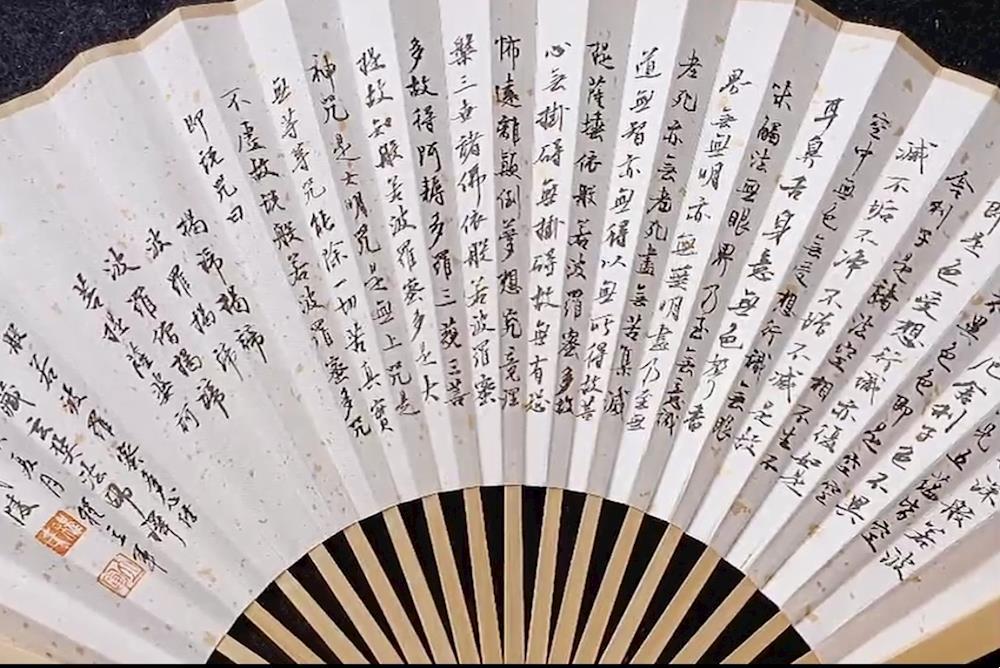 深般若波
見五蘊皆空
厄舍利子色不異空
不異色色即是空空
即是色受想行識亦復如是
舍利子是諸法空相不生不
滅不垢不淨不增不減是故
空中無色無受想行識無眼
耳鼻舌身意無色聲香
味觸法無眼界乃至無意識
界無無明亦無無明盡乃至無
老死亦無老死盡無苦集滅
道無智亦無得以無所得故菩
提薩埵依般若波羅蜜多故
心無掛碍無掛碍故無有恐
怖遠離顛倒夢想究竟涅
槃三世諸佛依般若波羅蜜
多故得阿耨多羅三藐三菩
提故知般若波羅蜜多是大
神咒是大明咒是無上咒是
無等等咒能除一切苦真實
不虛故說般若波羅蜜多咒
即說咒曰
揭諦揭諦
波羅揭諦
波羅僧揭諦
菩提薩婆訶
般若波羅蜜多心經
藏玄奘法師譯